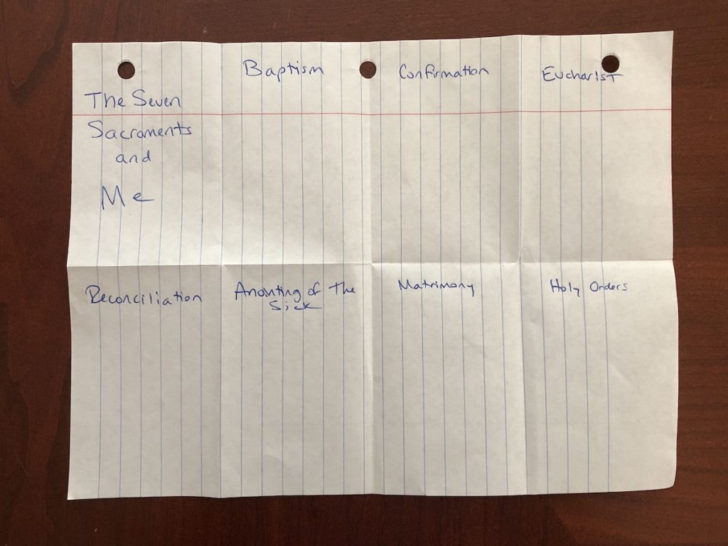 The Seven
Sacraments
and
Me
Baptism
Confirmation
Eucharist
Reconciliation
Anointing of the
Sick
Matrimony
Holy Orders